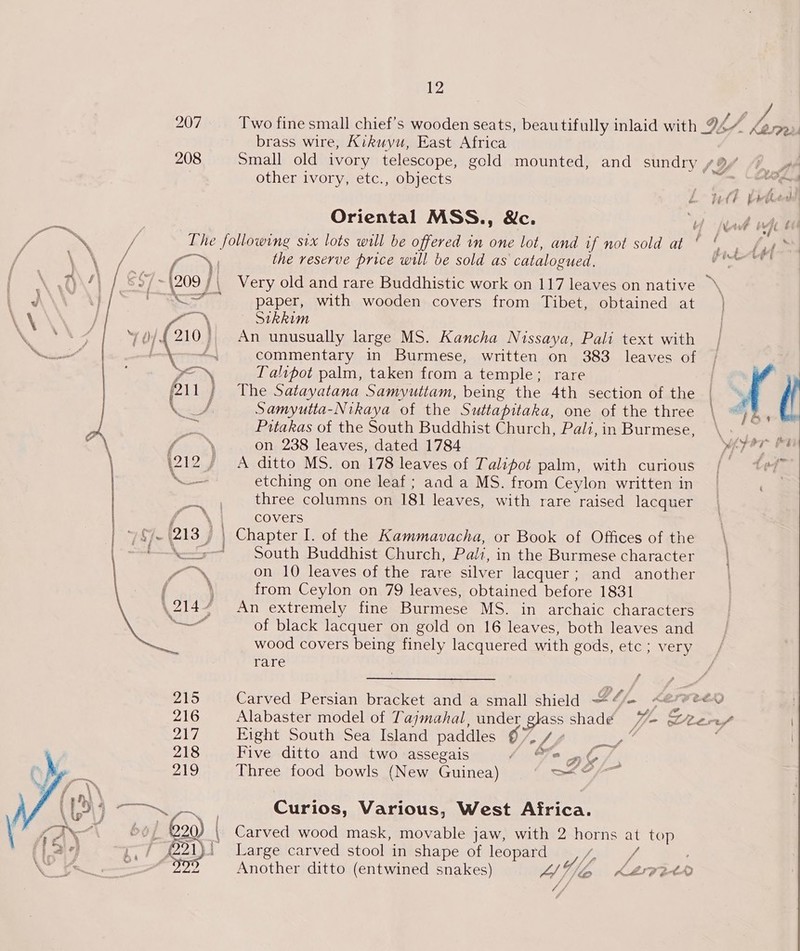 12
207 Two fine small chief's wooden seats, beautifully inlaid with
brass wire, Kikuyu, East Africa
208 Small old ivory telescope, gold mounted, and sundry
other ivory, etc., objects
Oriental MSS., &c.
The following six lots will be offered in one lot, and if not sold at
the reserve price will be sold as catalogued.
209 Very old and rare Buddhistic work on 117 leaves on native
paper, with wooden covers from Tibet, obtained at
Sikkim
210 An unusually large MS. Kancha Nissaya, Pali text with
commentary in Burmese, written on 383 leaves of
Talipot palm, taken from a temple; rare
211 The Satayatana Samyuttam, being the 4th section of the
Samyutta-Nikaya of the Suttapitaka, one of the three
Pitakas of the South Buddhist Church, Pali, in Burmese,
on 238 leaves, dated 1784
212 A ditto MS. on 178 leaves of Talipot palm, with curious
etching on one leaf; aad a MS. from Ceylon written in
three columns on 181 leaves, with rare raised lacquer
covers
213 Chapter I. of the Kammavacha, or Book of Offices of the
South Buddhist Church, Pali, in the Burmese character
on 10 leaves of the rare silver lacquer; and another
from Ceylon on 79 leaves, obtained before 1831
214 An extremely fine Burmese MS. in archaic characters
of black lacquer on gold on 16 leaves, both leaves and
wood covers being finely lacquered with gods, etc; very
rare
215 Carved Persian bracket and a small shield
216 Alabaster model of Tajmahal, under glass shade
217 Eight South Sea Island paddles
218 Five ditto and two assegais
219 Three food bowls (New Guinea)
Curios, Various, West Africa.
220 Carved wood mask, movable jaw, with 2 horns at top
221 Large carved stool in shape of leopard
222 Another ditto (entwined snakes)